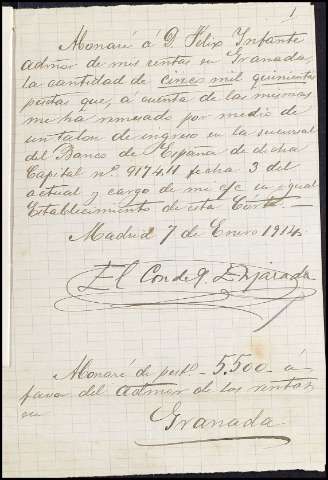 1
Abonaré á D. Felix Infante
admor de mis rentas en Granada,
la cantidad de cinco mil quinientas
pesetas que, á cuenta de las mismas
me ha remesado por medio de
un talon de ingreso en la sucursal
del Banco de España de dicha
Capital nº 917411 fecha 3 del
actual y cargo de mi c/c en igual
Establecimiento de esta Corte.
Madrid 7 de Enero 1914.
El Conde de
Abonaré de pests 5.500 á
favor del admor de las rentas
en
Granada